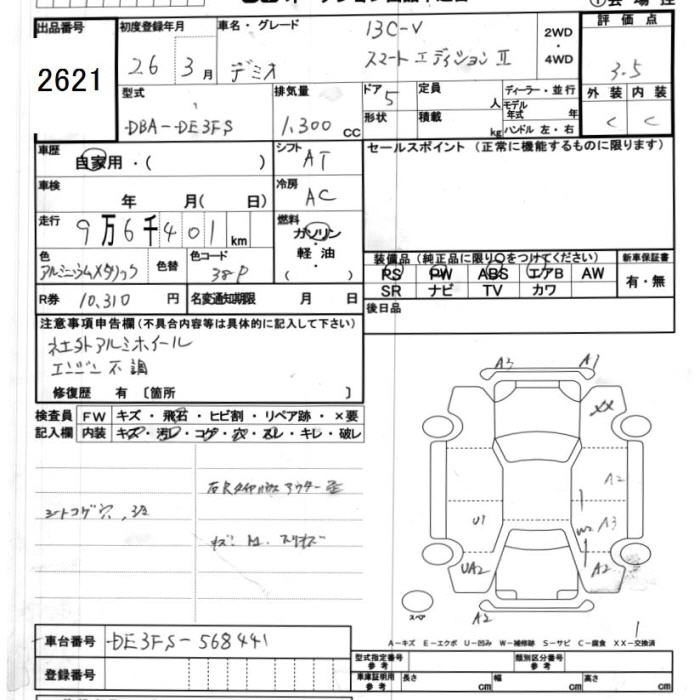 出品番号
2621
初度登録年月
26 3月
車名・グレード
13C-V
デミオ スマートエディションⅡ
2WD
・
4WD
評価点
3.5
外装 内装
C C
型式
DBA-DE3FS
排気量
1,300 CC
ドア 5
形状
定員 人
積載 kg
ディーラー・並行
モデル年式 年
ハンドル 左・右
車歴
自家用・( )
シフト AT
セールスポイント (正常に機能するものに限ります)
車検
年 月( 日)
冷房 AC
走行
9万6千401 km
燃料
ガソリン
・
軽油
( )
色 アルミニウムメタリック
色替
色コード 38P
装備品 (純正品に限り○をつけてください)
PS PW ABS エアB AW
SR ナビ TV カワ
新車保証書
有・無
R券 10,310 円
名変通知期限 月 日
後日品
注意事項申告欄 (不具合内容等は具体的に記入して下さい)
社外アルミホイール
エンジン不調
修復歴 有 〔箇所 〕
検査員記入欄
FW キズ・飛石・ヒビ割・リペア跡・×要
内装 キズ・汚レ・コゲ・穴・スレ・キレ・破レ
シートコゲ穴
A3 A1
XX
A2
U1
W2 A3
UA2 A2
スペア
A2
1
A-キズ E-エクボ U-凹み W-補修跡 S-サビ C-腐食 XX-交換済
車台番号 DE3FS-568441
登録番号
型式指定番号 参考
類別区分番号 参考
車庫証明用 参考
長さ cm 幅 cm 高さ cm